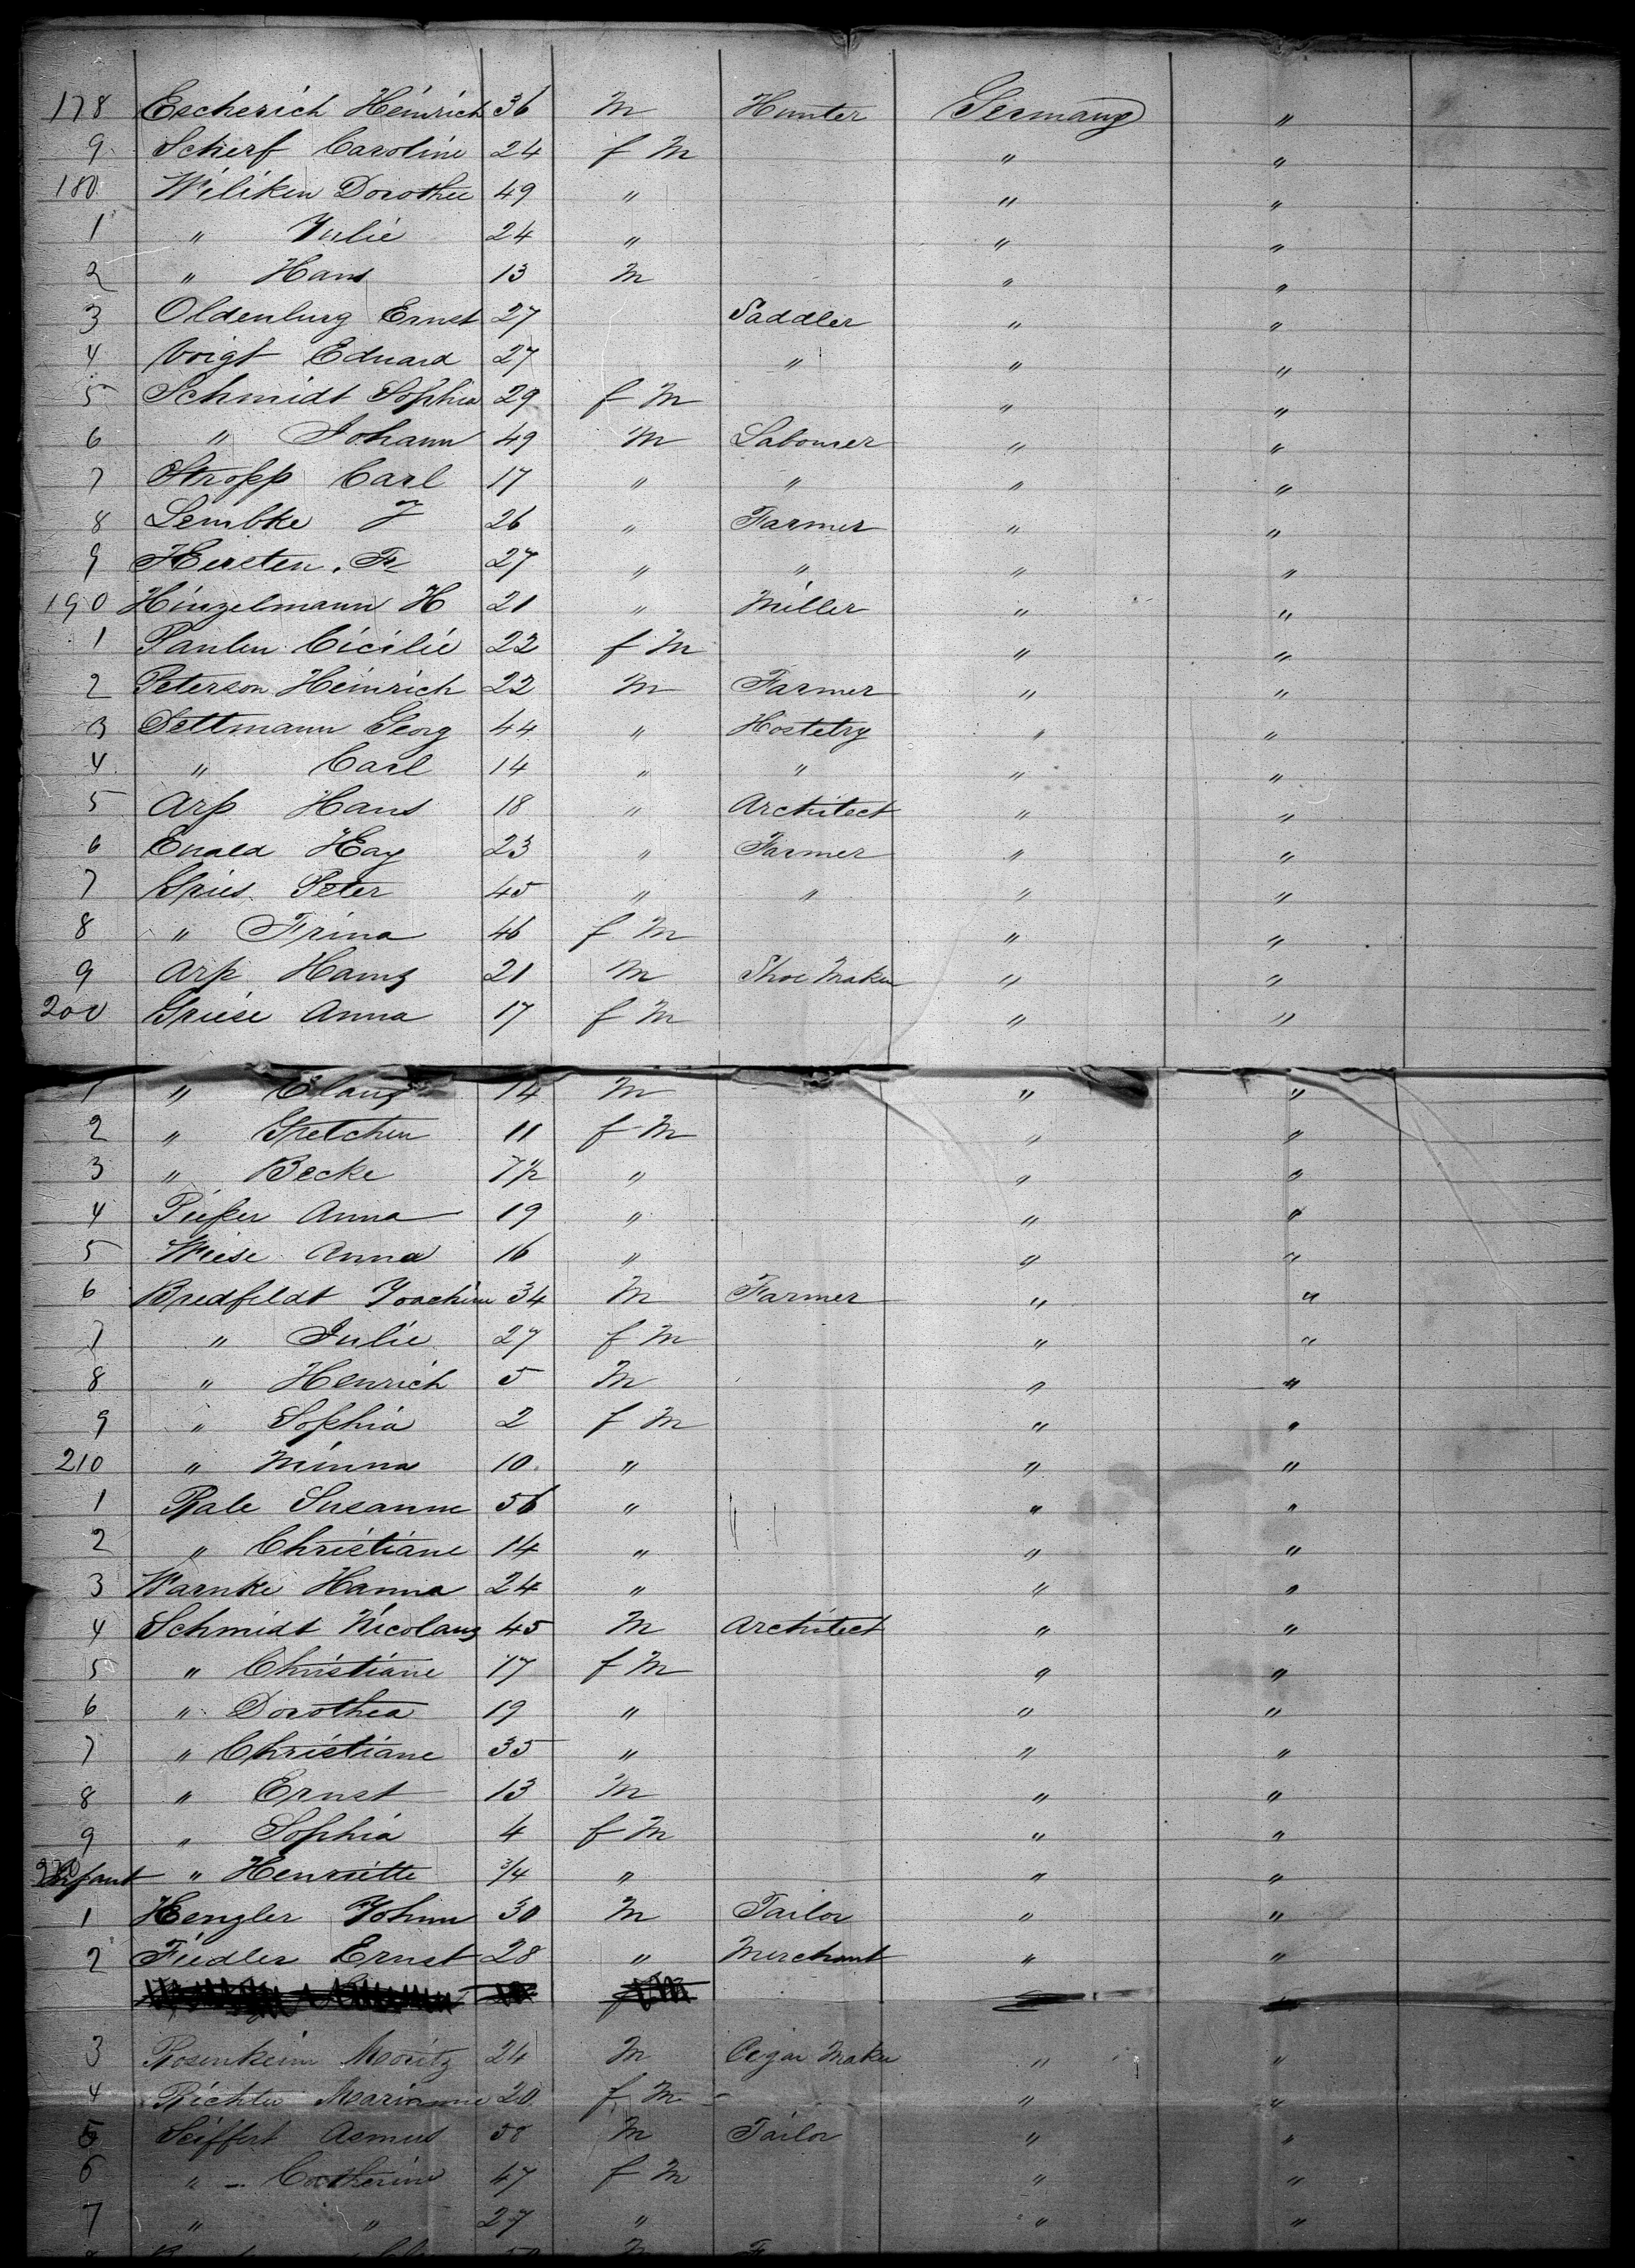 178 Escherich Heinrich 36 M Hunter Germany "
9 Scherf Caroline 24 f M " "
180 Wiliken Dorothee 49 " " "
1 " Julie 24 " " "
2 " Hans 13 M " "
3 Oldenburg Ernst 27 Saddler " "
4 Voigt Eduard 27 " " "
5 Schmidt Sophia 29 f M " "
6 " Johann 49 M Labourer " "
7 Stropp Carl 17 " " " "
8 Lembke J 26 " Farmer " "
9 Hersten. Fr 27 " " " "
190 Hinzelmann H 21 " Miller " "
1 Paulen Cicilie 22 f M " "
2 Peterson Heinrich 22 M Farmer " "
3 Dettmann Georg 44 " Hostelry " "
4 " Carl 14 " " " "
5 Arp Hans 18 " Architect " "
6 Enald Hay 23 " Farmer " "
7 Gries Peter 45 " " " "
8 " Trina 46 f M " "
9 Arp Hans 21 M Shoe Maker " "
200 Griese Anna 17 f M " "
1 " Claus 14 M " "
2 " Gretchen 11 f M " "
3 " Becke 7½ " " "
4 Pieper Anna 19 " " "
5 Wiese Anna 16 " " "
6 Bredfeldt Joachim 34 M Farmer " "
7 " Julie 27 f M " "
8 " Henrich 5 M " "
9 " Sophia 2 f M " "
210 " Minna 10 " " "
1 Rale Susanne 56 " " "
2 " Christiane 14 " " "
3 Warnke Hanna 24 " " "
4 Schmidt Nicolaus 45 M Architect " "
5 " Christiane 17 f M " "
6 " Dorothea 19 " " "
7 " Christiane 35 " " "
8 " Ernst 13 M " "
9 " Sophia 4 f M " "
Infant " Henriette ¾ " " "
1 Hengler Johann 30 M Tailor " "
2 Fiedler Ernst 28 " Merchant " "
3 Rosenheim Moritz 24 M Cigar Maker " "
4 Richter Marianne 20 f M " "
5 Seiffert Asmus 50 M Tailor " "
6 " Catherine 47 f M " "
7 " " 27 " " "